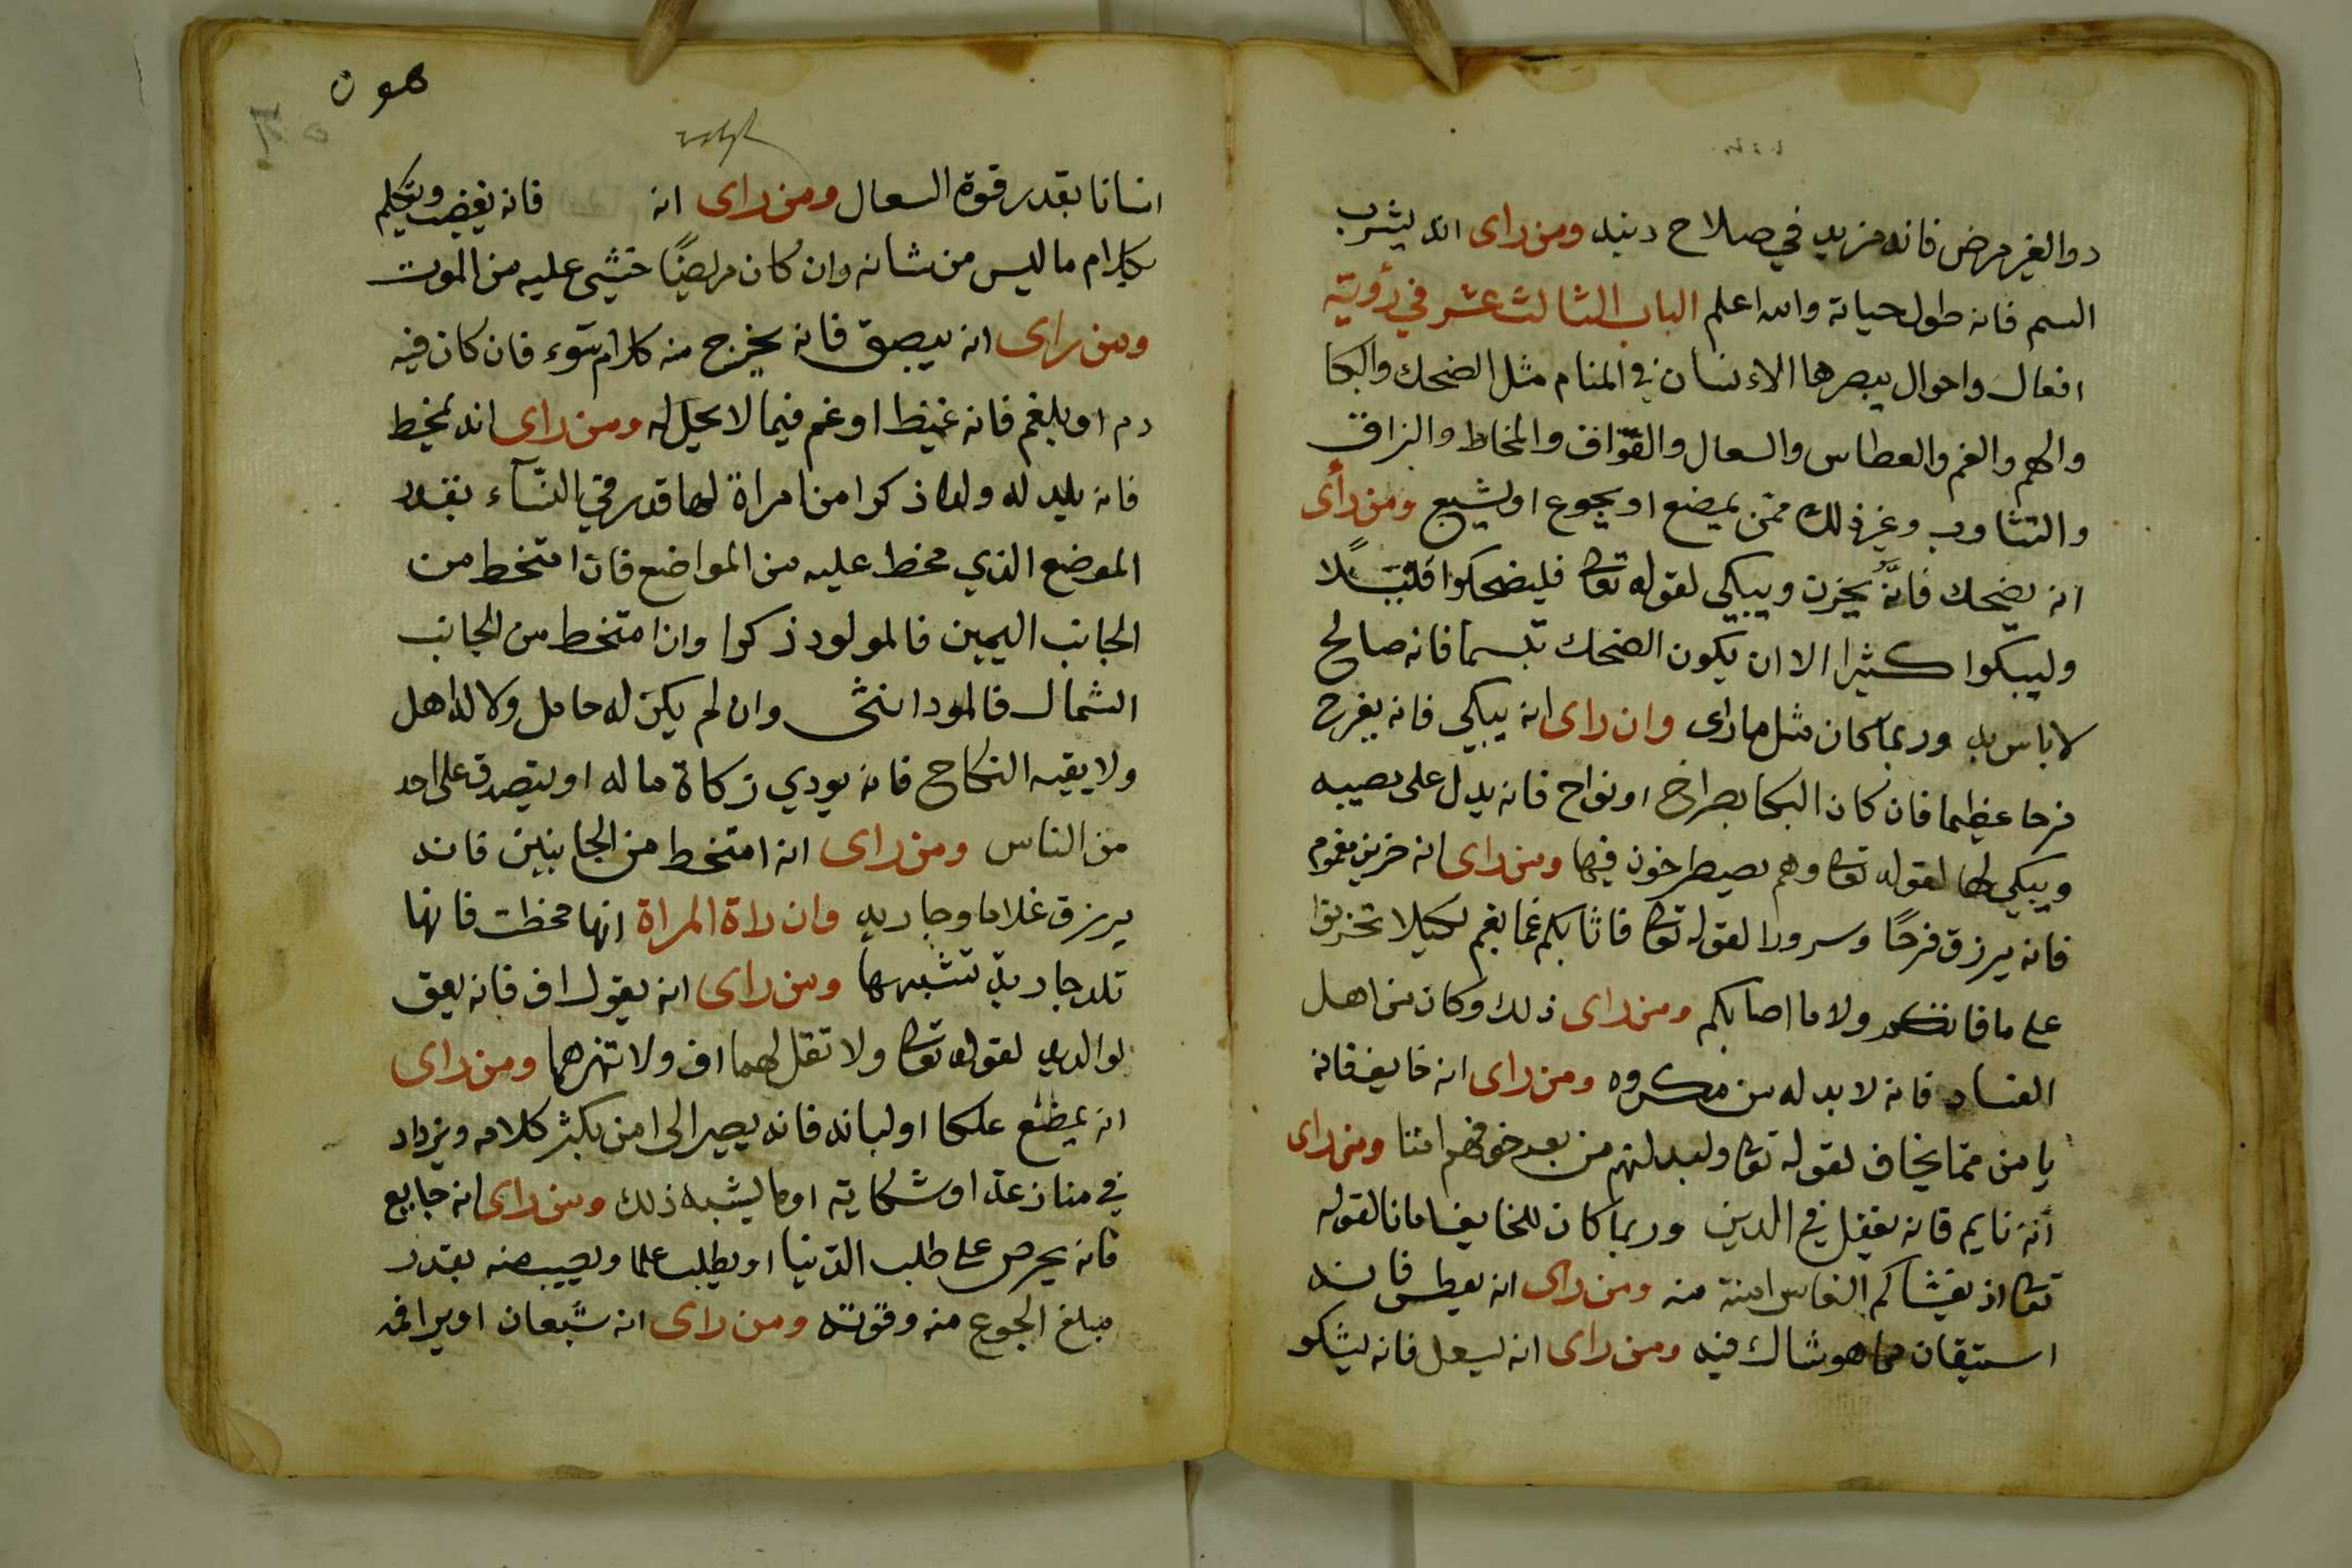 دوا لغير مرض فانه مزيد في صلاح دينه ومن راى انه يشرب
السم فانه طول حياته والله اعلم الباب الثالث عشر في رؤية
افعال واحوال يبصرها الانسان في المنام مثل الضحك والبكا
والهم والغم والعطاس والسعال والفواق والمخاط والبزاق
والتثاوب وغير ذلك ممن يمضع او يجوع او يشبع ومن رأى
انه يضحك فانه يحزن ويبكي لقوله تعالى فليضحكوا قليلا
وليبكوا كثيرا الا ان يكون الضحك تبسما فانه صالح
لا باس به وربما كان مثل ما راى وان راى انه يبكي فانه يفرح
فرحا عظيما فان كان البكا بصراخ او نواح فانه يدل على مصيبه
ويبكي لها لقوله تعالى وهم يصيطرخون فيها ومن راى انه حزين مغموم
فانه يرزق فرحًا وسرورا لقوله تعالى فاثابكم غما بغم لكيلا تحزنوا
على ما فاتكم ولا ما اصابكم ومن راى ذلك وكان من اهل
الفساد فانه لا بد له من مكروه ومن راى انه خايف فانه
يامن مما يخاف لقوله تعالى وليبدلنهم من بعد خوفهم امنا ومن راى
أنه نايم فانه يغفل في الدين وربما كان للخايف امانا لقوله
تعالى اذ يغشاكم النعاس امنة منه ومن راى انه يعطس فانه
استيقان مما هو شاك فيه ومن راى انه يسعل فانه يشكو
هو ن
انسانا بقدر قوة السعال ومن راى انه فانه يغضب ويتكلم
بكلام ما ليس من شانه وان كان مريضًا خشي عليه من الموت
ومن راى انه يبصق فانه يخرج منه كلام سوء فان كان فيه
دم او بلغم فانه غيظ او غم فيما لا يحل له ومن راى انه يمخط
فانه يلد له ولدا ذكرا من امراة لها قدر في النساء بقدر
الموضع الذي مخط عليه من المواضع فان امتخط من
الجانب اليمين فالمولود ذكرا وان امتخط من الجانب
الشمال فالمود انثى وان لم يكن له حامل ولا له اهل
ولا يقيه النكاح فانه يودي زكاة ماله او يتصدق على احد
من الناس ومن راى انه امتخط من الجانبين فانه
يرزق غلاما وجاريه وان راة المراة انها مخطت فانها
تلد جارية تشبهها ومن راى انه يقول اف فانه يعق
لوالديه لقوله تعالى ولا تقل لهما اف ولا تنهرهما ومن راى
انه يمضغ علكا او لبانه فانه يصير الى امن يكثر كلامه ويزداد
في منازعة او شكاية او ما يشبه ذلك ومن راى انه جايع
فانه يحرص على طلب الدنيا او يطلب علما ويصيب منه بقدر
مبلغ الجوع منه وقوته ومن راى انه شبعان او يرا انه